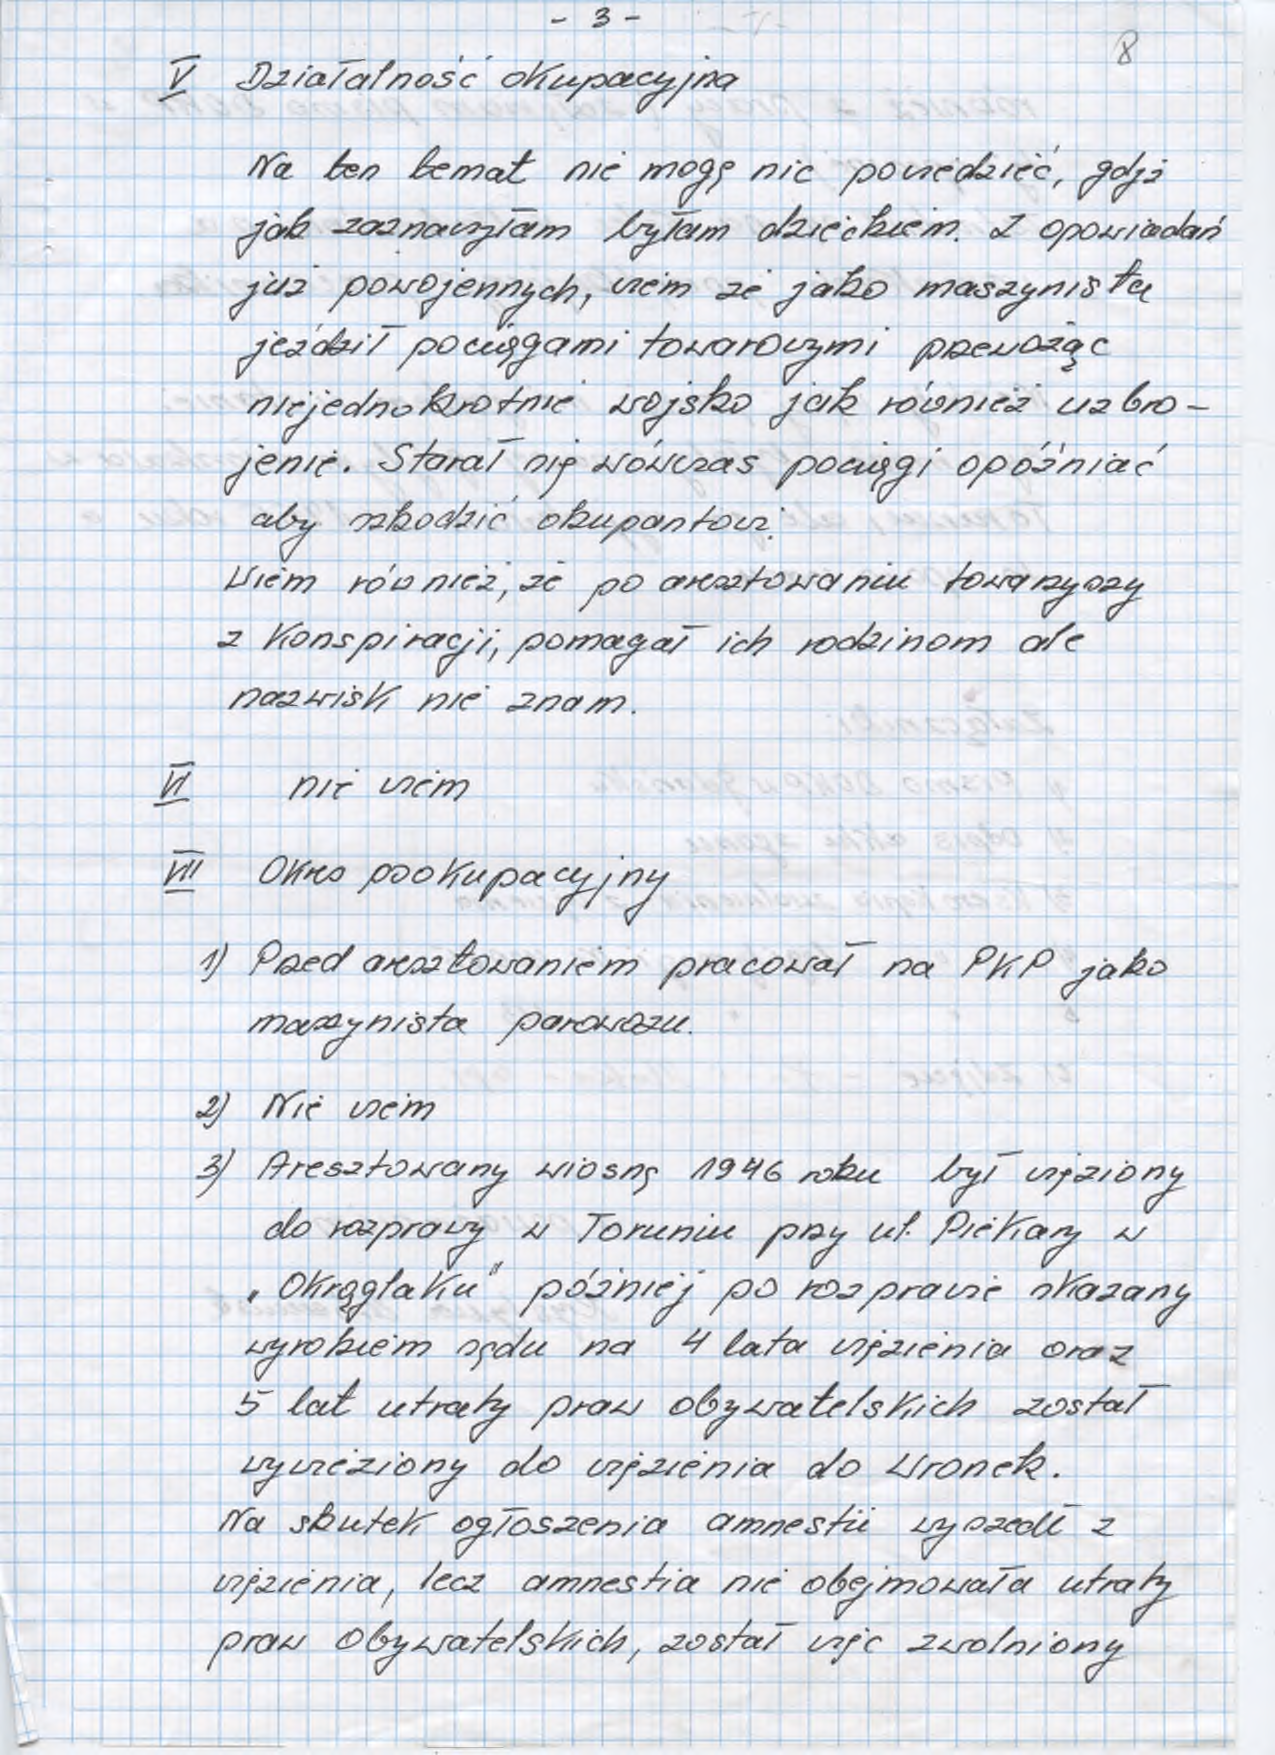 - 3 -
8
V Działalność okupacyjna
Na ten temat nie mogę nic powiedzieć, gdyż
jak zaznaczyłam byłam dzieckiem. Z opowiadań
już powojennych, wiem że jako maszynista
jeździł pociągami towarowymi przewożąc
niejednokrotnie wojsko jak również uzbro-
jenie. Starał się wówczas pociągi opóźniać
aby szkodzić okupantowi.
Wiem również, że po aresztowaniu towarzyszy
z Konspiracji, pomagał ich rodzinom ale
nazwisk nie znam.
VI nie wiem
VII Okres pookupacyjny
1) Przed aresztowaniem pracował na PKP jako
maszynista parowozu.
2) Nie wiem
3) Aresztowany wiosną 1946 roku był więziony
do rozprawy w Toruniu przy ul. Piekary w
„Okrąglaku" później po rozprawie skazany
wyrokiem sądu na 4 lata więzienia oraz
5 lat utraty praw obywatelskich został
wywieziony do więzienia do Wronek.
Na skutek ogłoszenia amnestii wyszedł z
więzienia, lecz amnestia nie obejmowała utraty
praw obywatelskich, został więc zwolniony